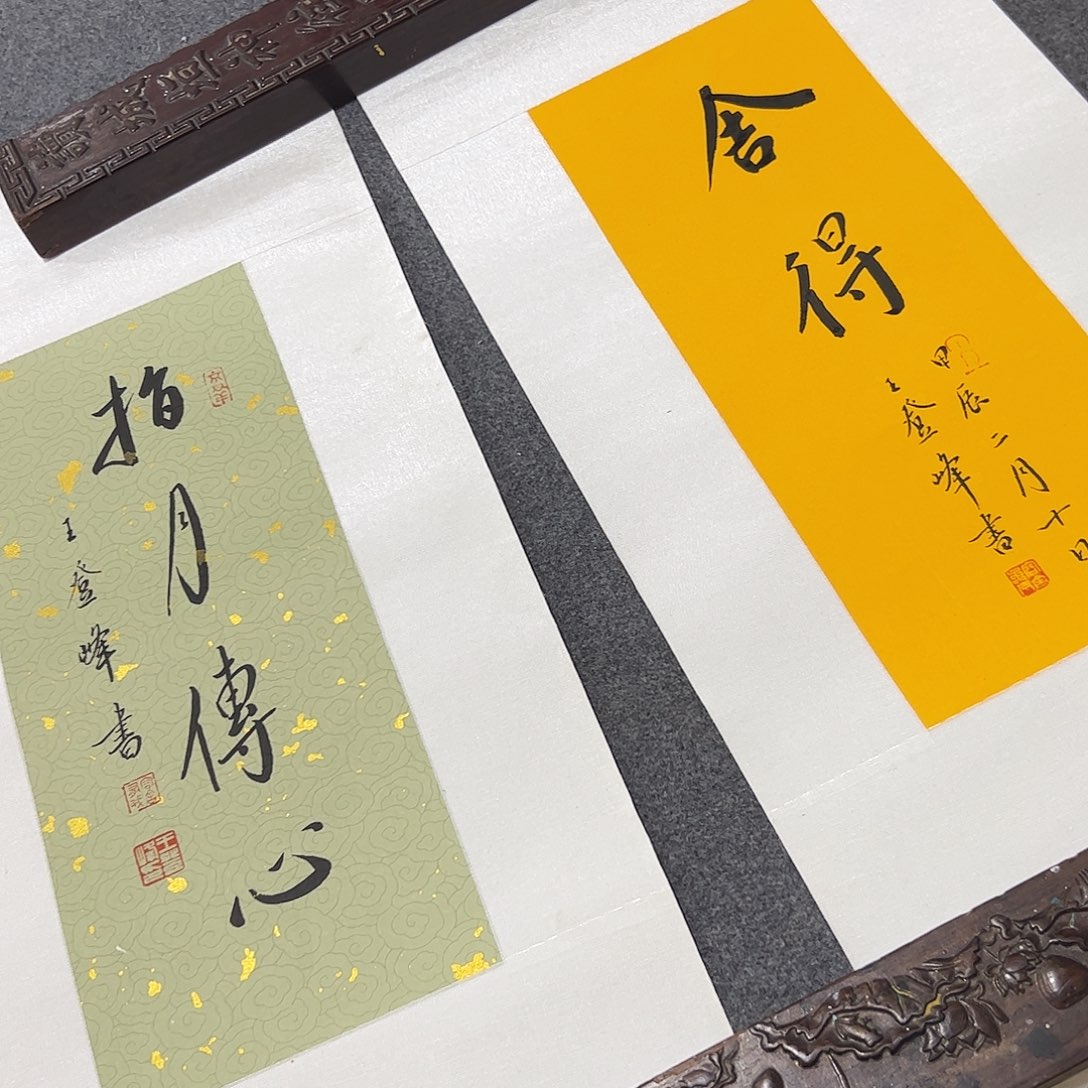 舍得
甲辰二月十日
王登峰書
指月傳心
王登峰書